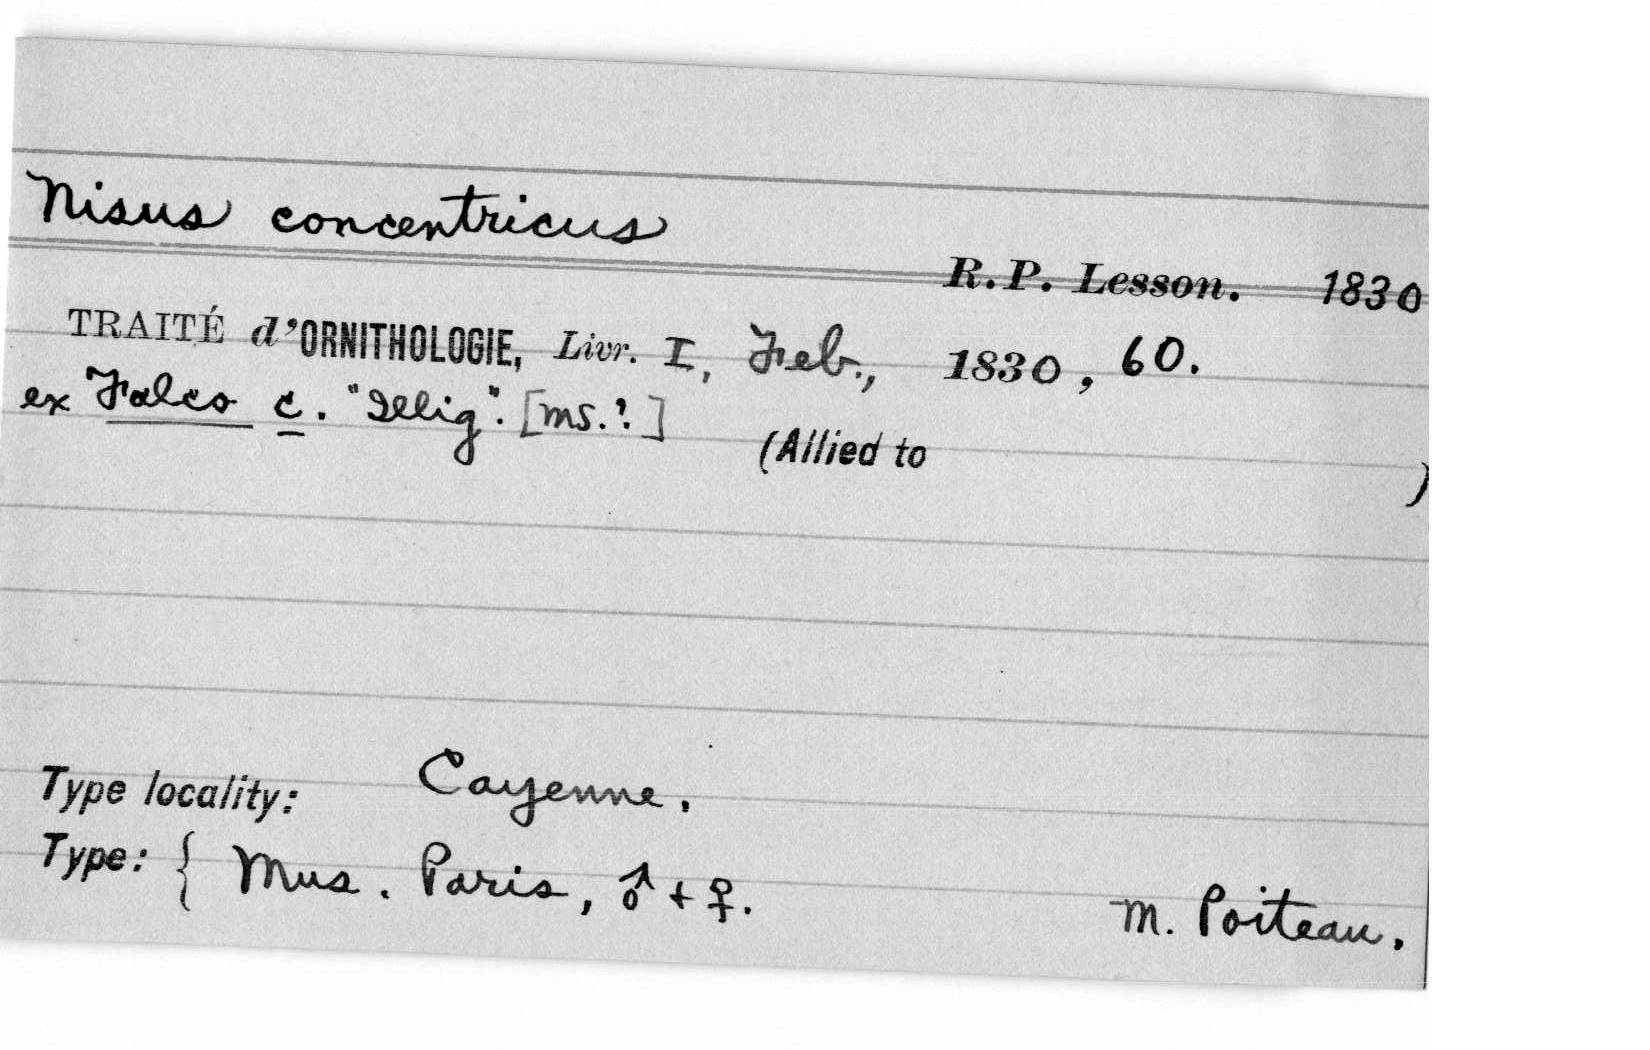 Nisus concentricus
R. P. Lesson. 1830
TRAITÉ d'ORNITHOLOGIE, Livr. I, Feb., 1830, 60.
ex Falco c. "Illig". [ms.?]
(Allied to )
Type locality: Cayenne.
Type: { Mus. Paris, ♂ + ♀. M. Poiteau.